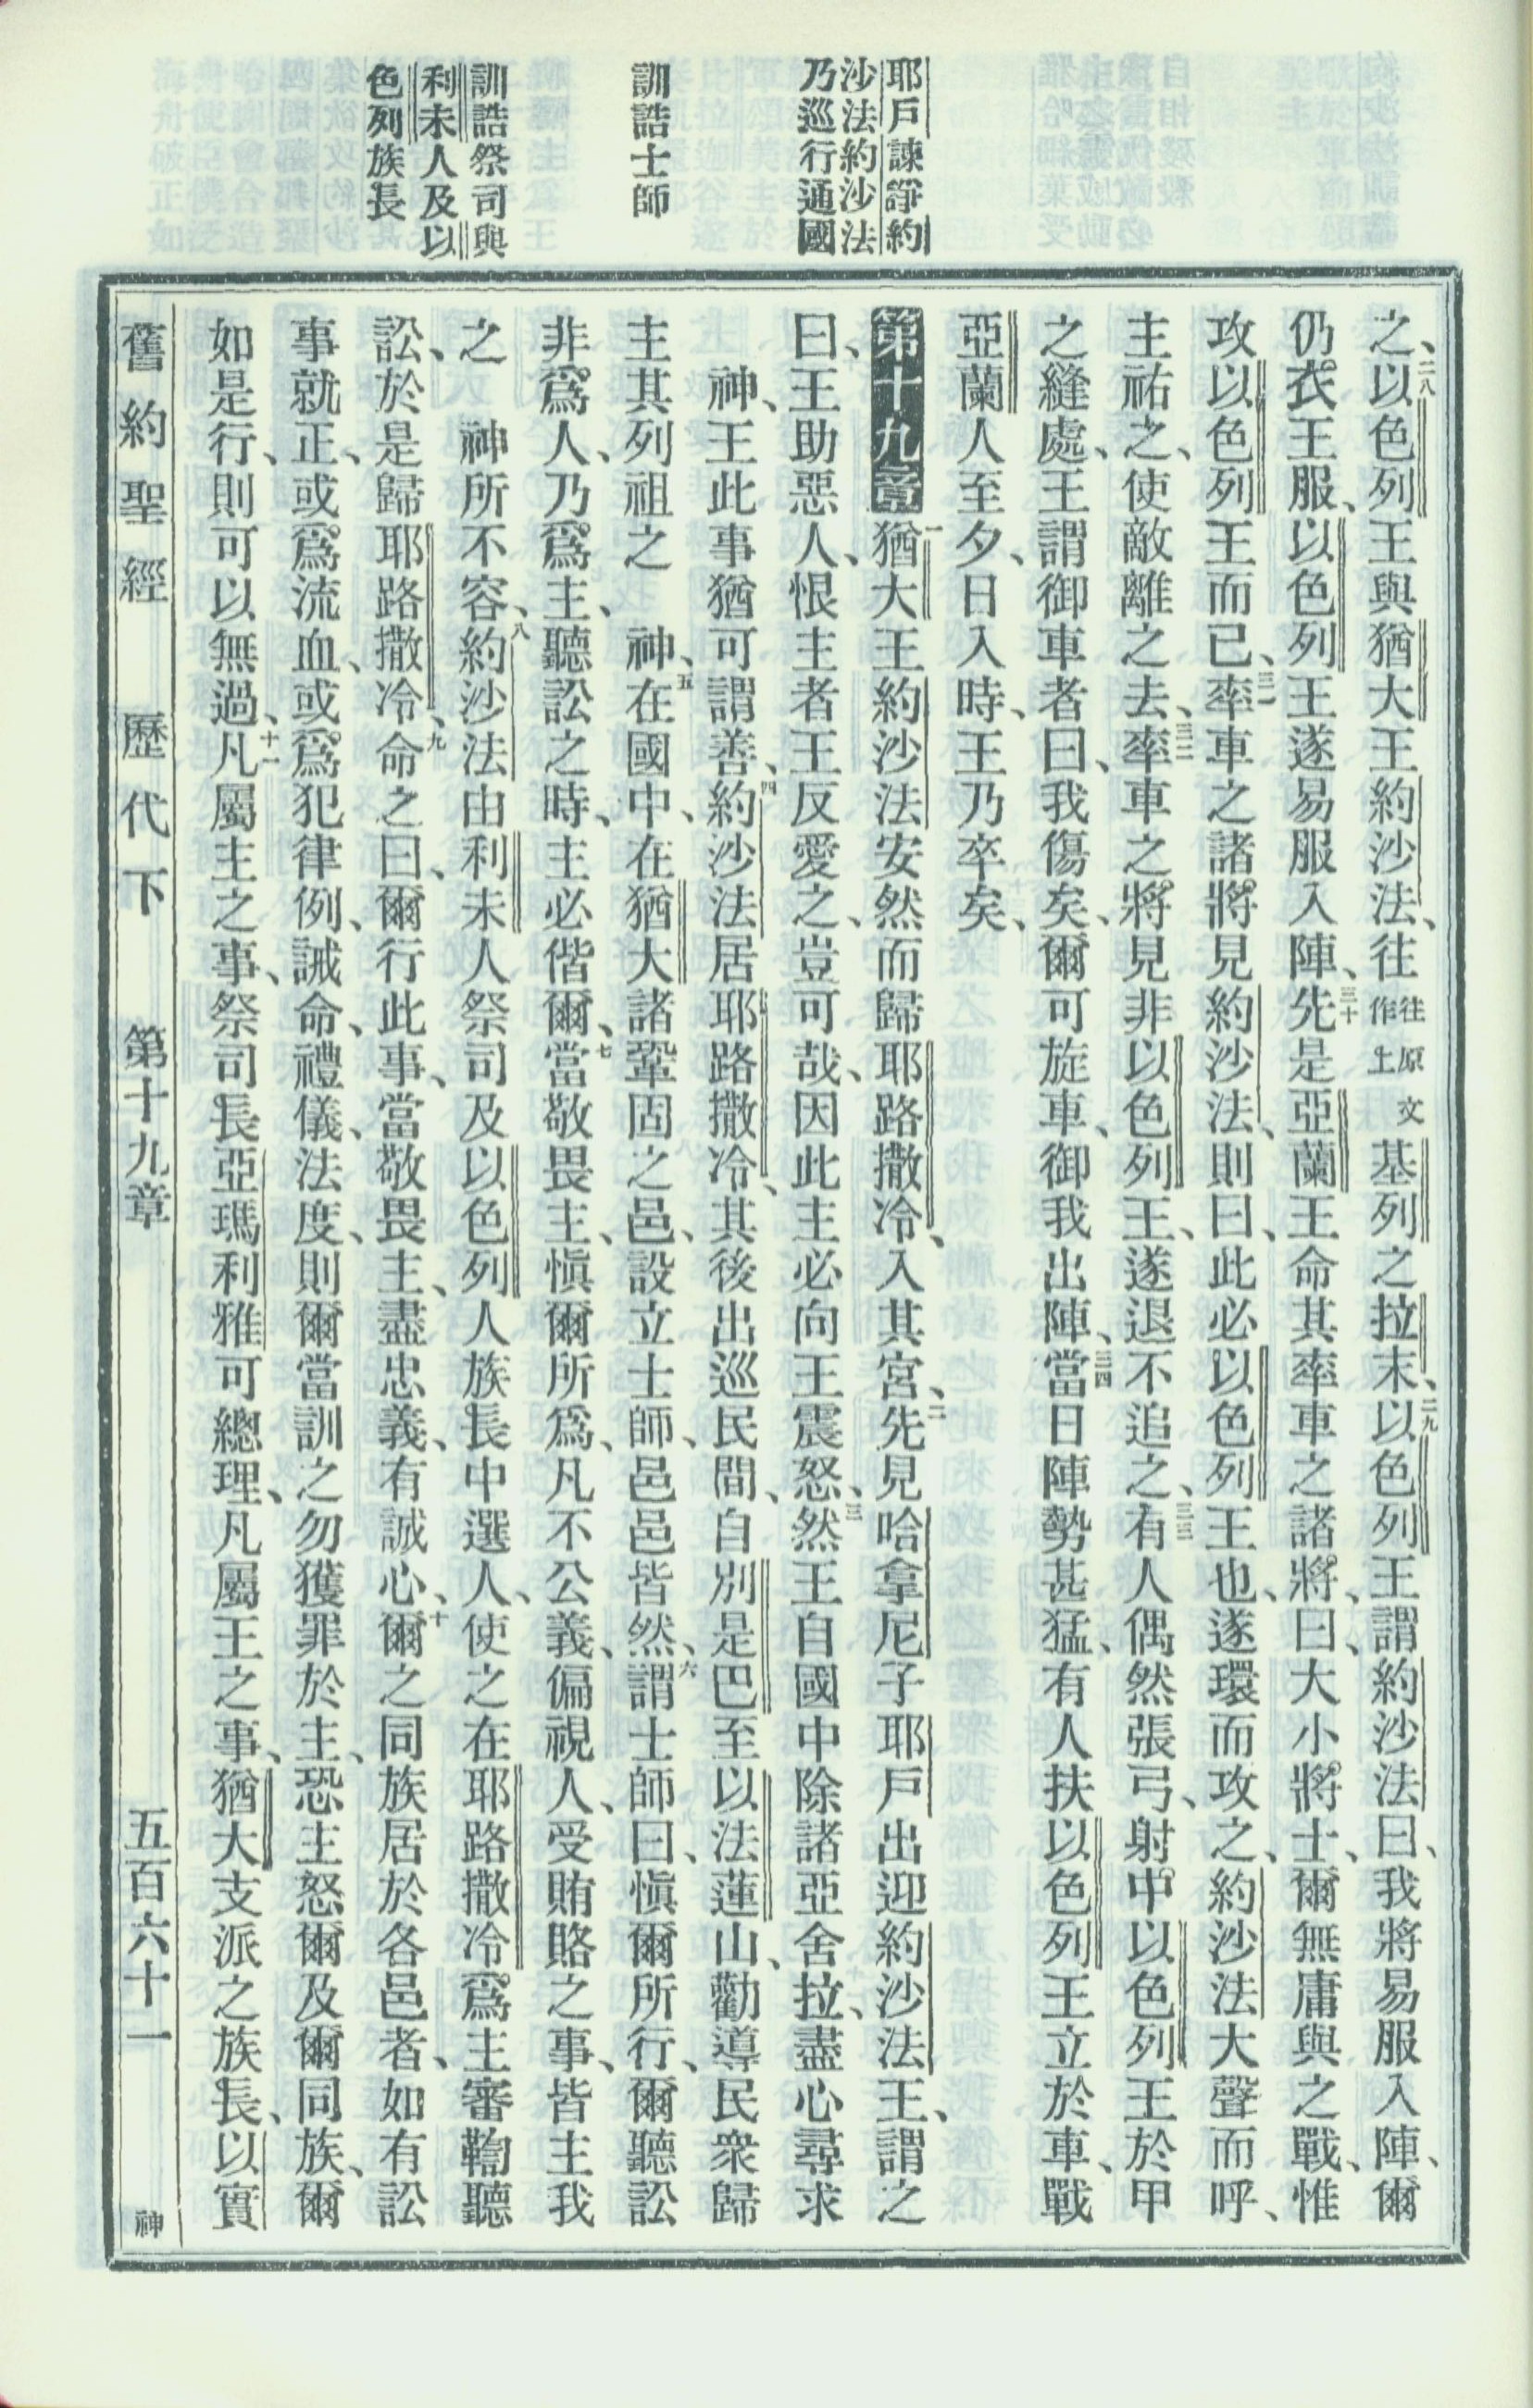 耶戶諫諍約
沙法約沙法
乃巡行通國
訓誥士師
訓誥祭司與
利未人及以
色列族長
之、二八以色列王與猶大王約沙法、往往原文作上基列之拉末、二九以色列王謂約沙法曰、我將易服入陣、爾
仍衣王服、以色列王遂易服入陣、三十先是亞蘭王命其率車之諸將、曰、大小將士、爾無庸與之戰、惟
攻以色列王而已、三一率車之諸將見約沙法、則曰、此必以色列王也、遂環而攻之、約沙法大聲而呼、
主祐之、使敵離之去、三二率車之將見非以色列王、遂退不追之、三三有人偶然張弓、射中以色列王於甲
之縫處、王謂御車者曰、我傷矣、爾可旋車、御我出陣、三四當日陣勢甚猛、有人扶以色列王立於車、戰
亞蘭人至夕、日入時、王乃卒矣、
第十九章一猶大王約沙法安然而歸耶路撒冷、入其宮、二先見哈拿尼子耶戶出迎約沙法王、謂之
曰、王助惡人、恨主者王反愛之、豈可哉、因此主必向王震怒、三然王自國中除諸亞舍拉、盡心尋求
神、王此事猶可謂善、四約沙法居耶路撒冷、其後出巡民間、自別是巴至以法蓮山、勸導民衆歸
主其列祖之 神、五在國中、在猶大諸鞏固之邑、設立士師、邑邑皆然、六謂士師曰、愼爾所行、爾聽訟
非爲人、乃爲主、聽訟之時、主必偕爾、七當敬畏主、愼爾所爲、凡不公義、偏視人、受賄賂之事、皆主我
之 神所不容、八約沙法由利未人祭司及以色列人族長中選人、使之在耶路撒冷爲主審鞫聽
訟、於是歸耶路撒冷、九命之曰、爾行此事、當敬畏主、盡忠義、有誠心、十爾之同族居於各邑者、如有訟
事就正、或爲流血、或爲犯律例、誡命、禮儀、法度、則爾當訓之勿獲罪於主、恐主怒爾及爾同族、爾
如是行、則可以無過、十一凡屬主之事、祭司長亞瑪利雅可總理、凡屬王之事、猶大支派之族長、以實
舊約聖經 歷代下 第十九章 五百六十一 神